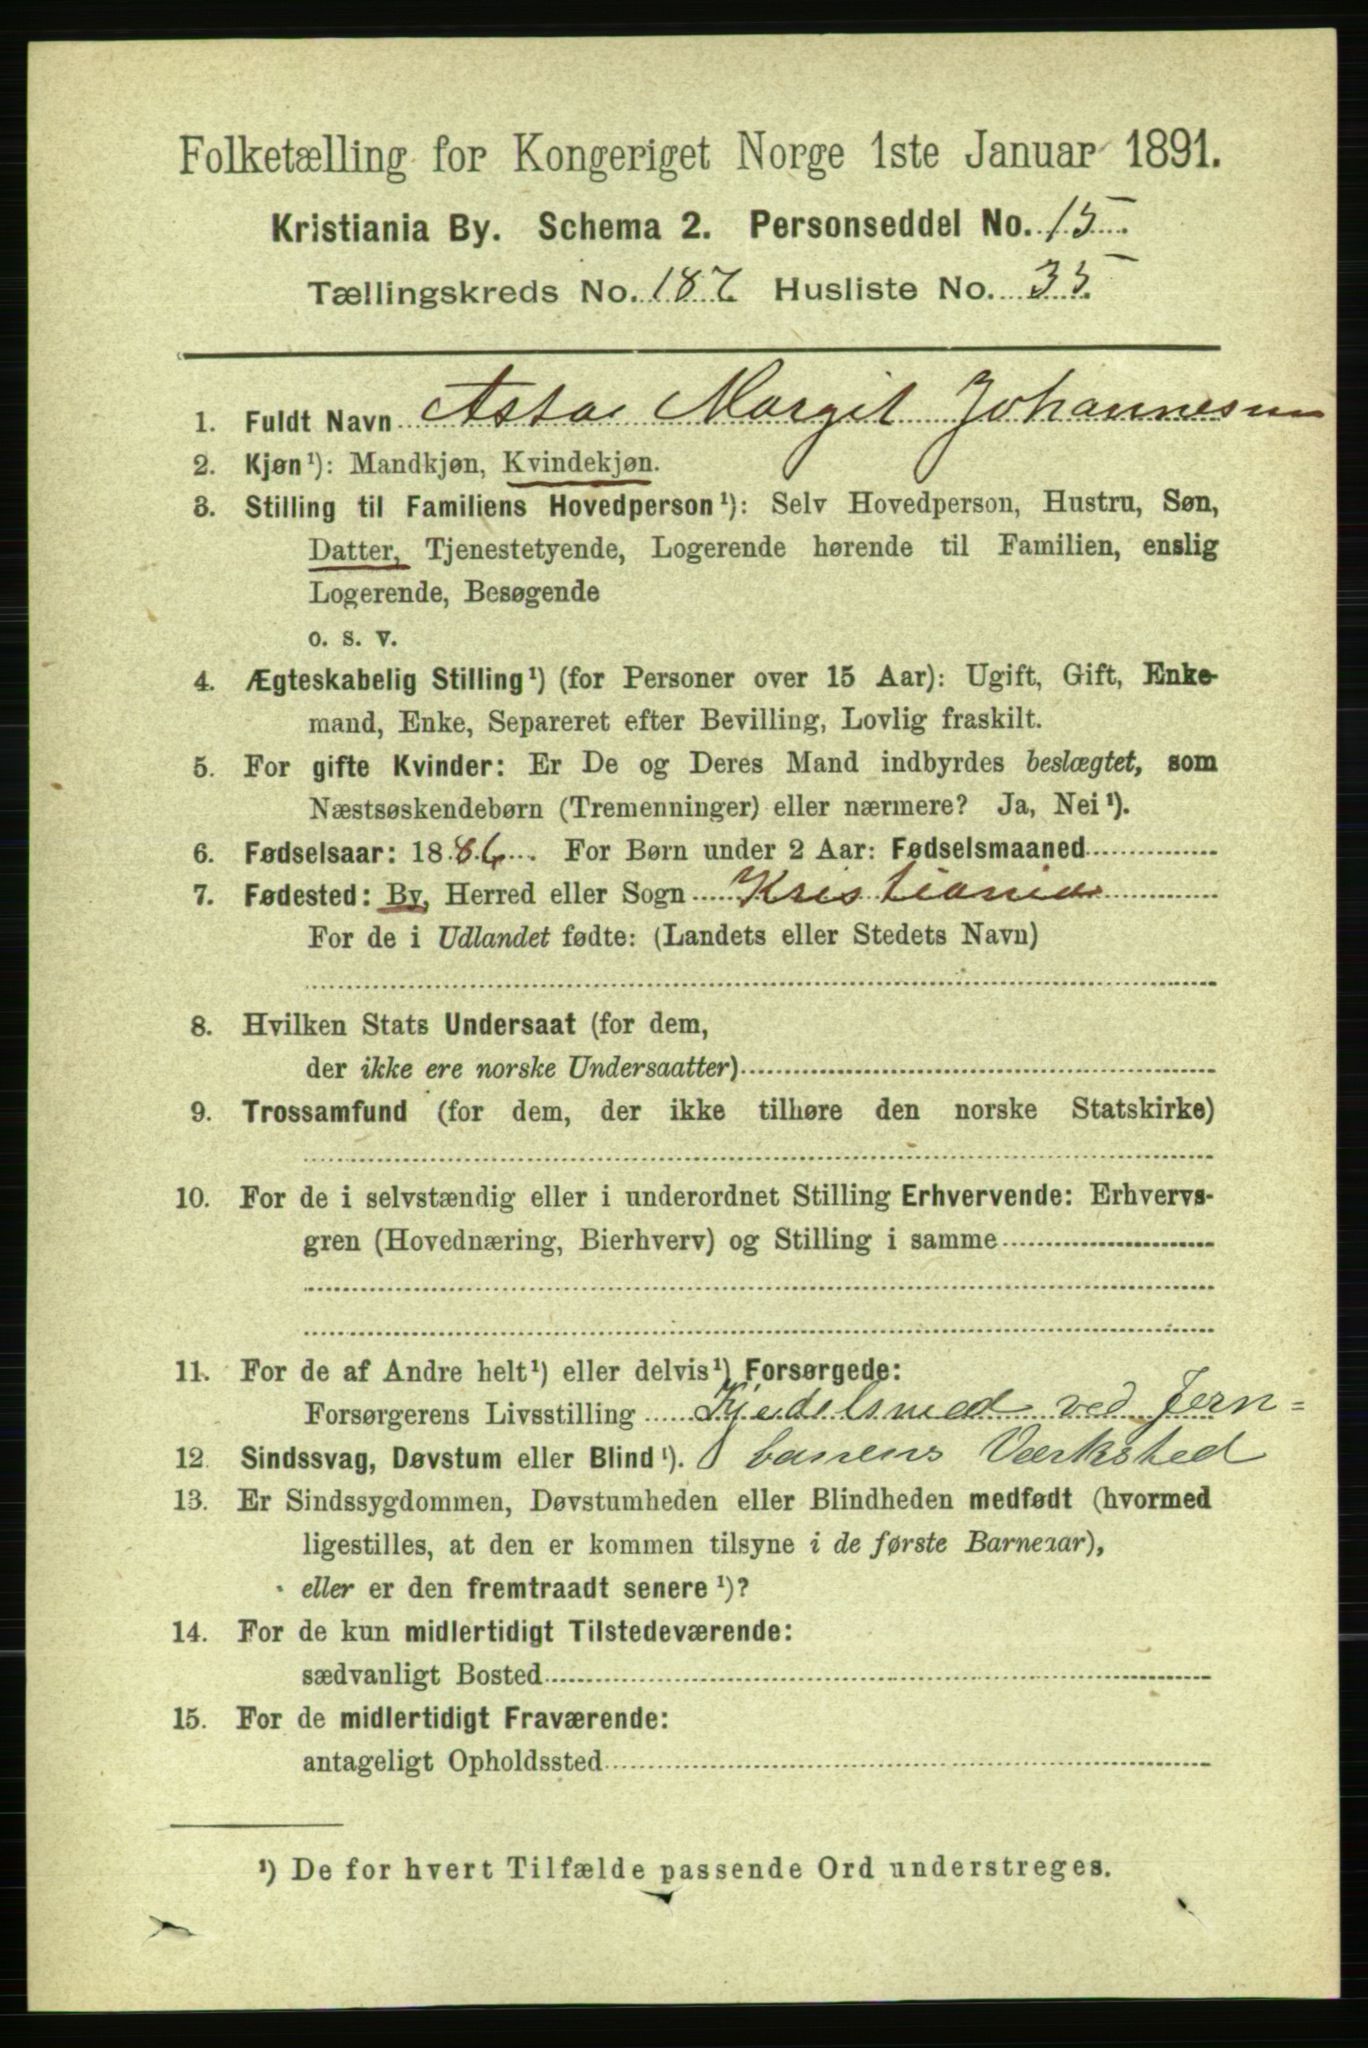 Folketælling for Kongeriget Norge 1ste Januar 1891.
Kristiania By. Schema 2. Personseddel No. 15.
Tællingskreds No. 187 Husliste No. 35
1. Fuldt Navn Asta Margit Johannesen
2. Kjøn¹): Mandkjøn, Kvindekjøn.
3. Stilling til Familiens Hovedperson¹): Selv Hovedperson, Hustru, Søn,
Datter, Tjenestetyende, Logerende hørende til Familien, enslig
Logerende, Besøgende
o. s. v.
4. Ægteskabelig Stilling¹) (for Personer over 15 Aar): Ugift, Gift, Enke-
mand, Enke, Separeret efter Bevilling, Lovlig fraskilt.
5. For gifte Kvinder: Er De og Deres Mand indbyrdes beslægtet, som
Næstsøskendebørn (Tremenninger) eller nærmere? Ja, Nei¹).
6. Fødselsaar: 1886. For Børn under 2 Aar: Fødselsmaaned
7. Fødested: By, Herred eller Sogn Kristiania
For de i Udlandet fødte: (Landets eller Stedets Navn)
8. Hvilken Stats Undersaat (for dem,
der ikke ere norske Undersaatter)
9. Trossamfund (for dem, der ikke tilhøre den norske Statskirke)
10. For de i selvstændig eller i underordnet Stilling Erhvervende: Erhvervs-
gren (Hovednæring, Bierhverv) og Stilling i samme
11. For de af Andre helt¹) eller delvis¹) Forsørgede:
Forsørgerens Livsstilling Kjedelsmed ved Jern=
12. Sindssvag, Døvstum eller Blind¹). banens Værksted
13. Er Sindssygdommen, Døvstumheden eller Blindheden medfødt (hvormed
ligestilles, at den er kommen tilsyne i de første Barneaar),
eller er den fremtraadt senere¹)?
14. For de kun midlertidigt Tilstedeværende:
sædvanligt Bosted
15. For de midlertidigt Fraværende:
antageligt Opholdssted
¹) De for hvert Tilfælde passende Ord understreges.